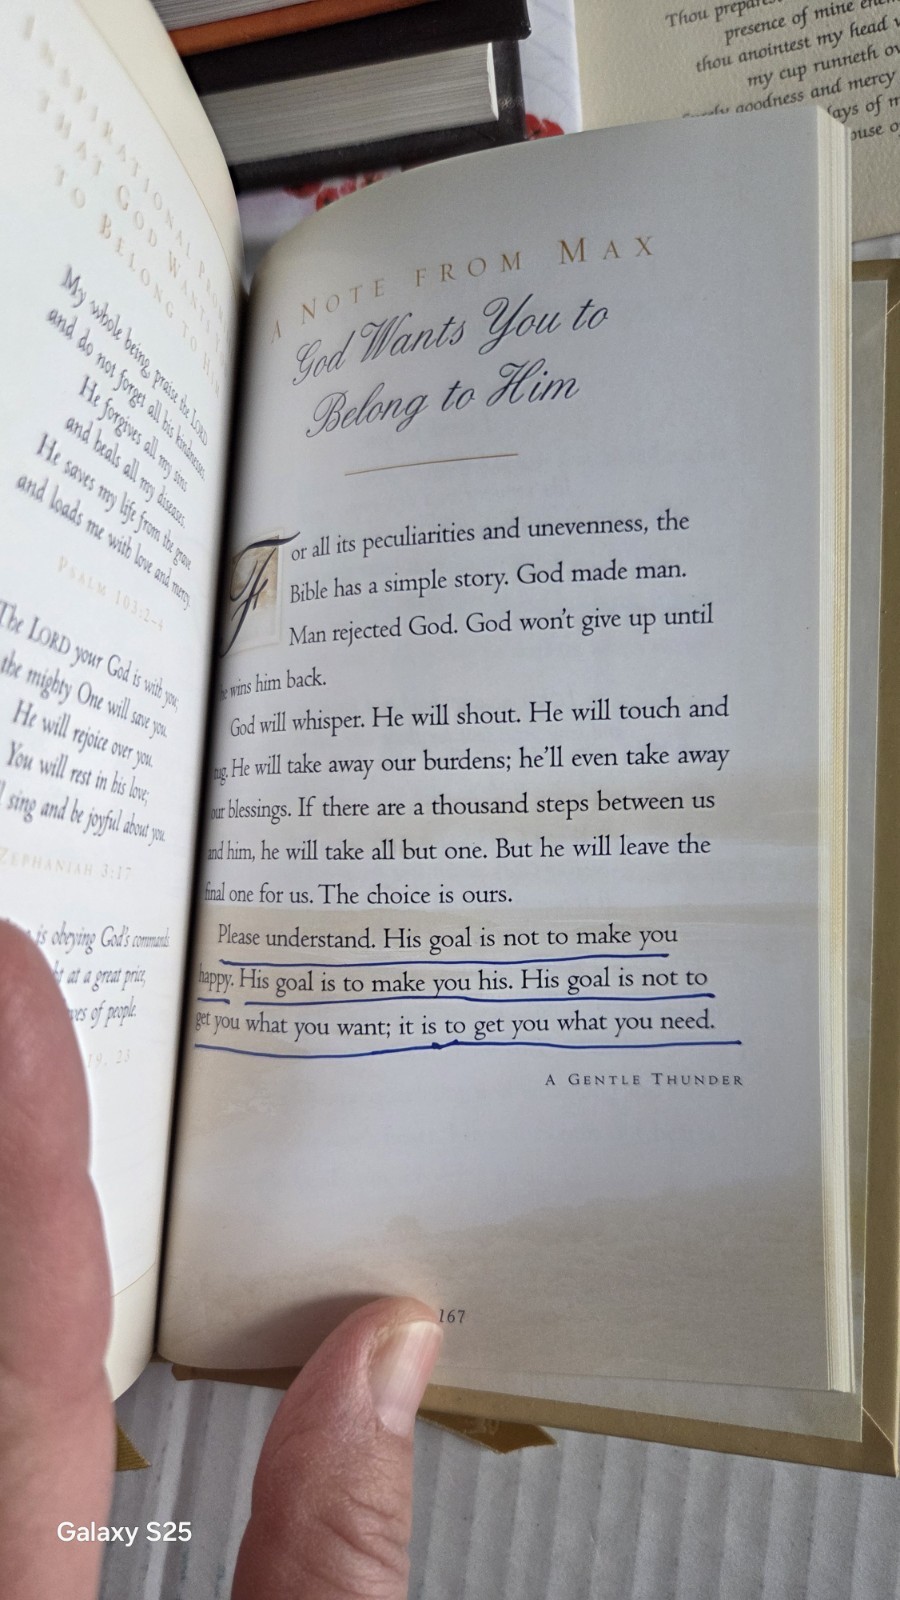 Thou
presence of mine
thou anointest my head
my cup runneth
goodness and mercy
of
INSPIRATIONAL
THAT GOD WANTS
TO BELONG TO HIM
My whole being, praise the LORD
and do not forget all his kindnesses.
He forgives all my sins
and heals all my diseases.
He saves my life from the grave
and loads me with love and mercy.
PSALM 103:2-4
The LORD your God is with you;
the mighty One will save you.
He will rejoice over you.
You will rest in his love;
sing and be joyful about you.
ZEPHANIAH 3:17
is obeying God's commands.
at a great price,
of people.
19, 23
A NOTE FROM MAX
God Wants You to
Belong to Him
For all its peculiarities and unevenness, the
Bible has a simple story. God made man.
Man rejected God. God won't give up until
he wins him back.
God will whisper. He will shout. He will touch and
tug. He will take away our burdens; he'll even take away
our blessings. If there are a thousand steps between us
and him, he will take all but one. But he will leave the
final one for us. The choice is ours.
Please understand. His goal is not to make you
happy. His goal is to make you his. His goal is not to
get you what you want; it is to get you what you need.
A GENTLE THUNDER
167
Galaxy S25